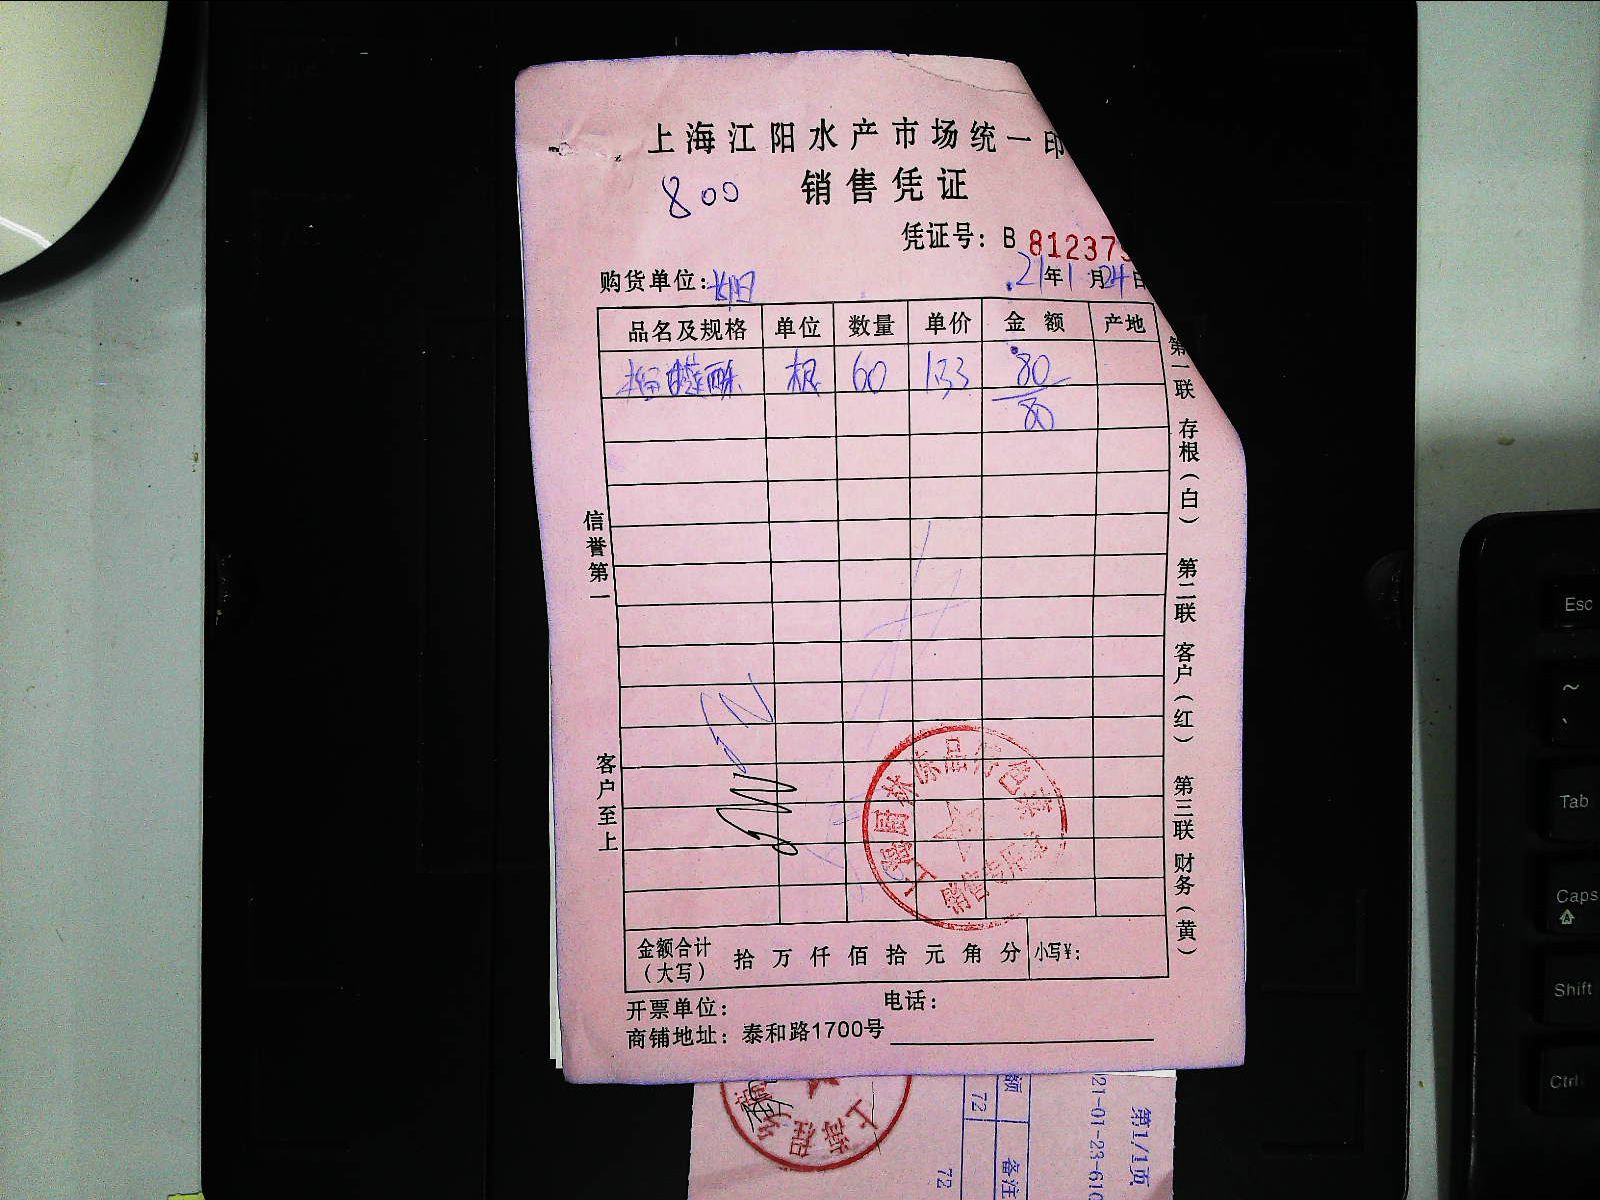 上海江阳水产市场统一印
800 销售凭证
凭证号：B 812375
购货单位：
21年1月24日
品名及规格 单位 数量 单价 金额 产地
榴莲酥 根 60 1.33 80
80
信誉第一
客户至上
第一联 存根（白） 第二联 客户（红） 第三联 财务（黄）
上海厨林冻品 色素
销售专用章
金额合计（大写） 拾 万 仟 佰 拾 元 角 分 小写¥：
开票单位： 电话：
商铺地址：泰和路1700号
上海程
额 备注
72
72
21-01-23-610
第1/1页
Esc
~
`
Tab
Caps
Shift
Ctrl